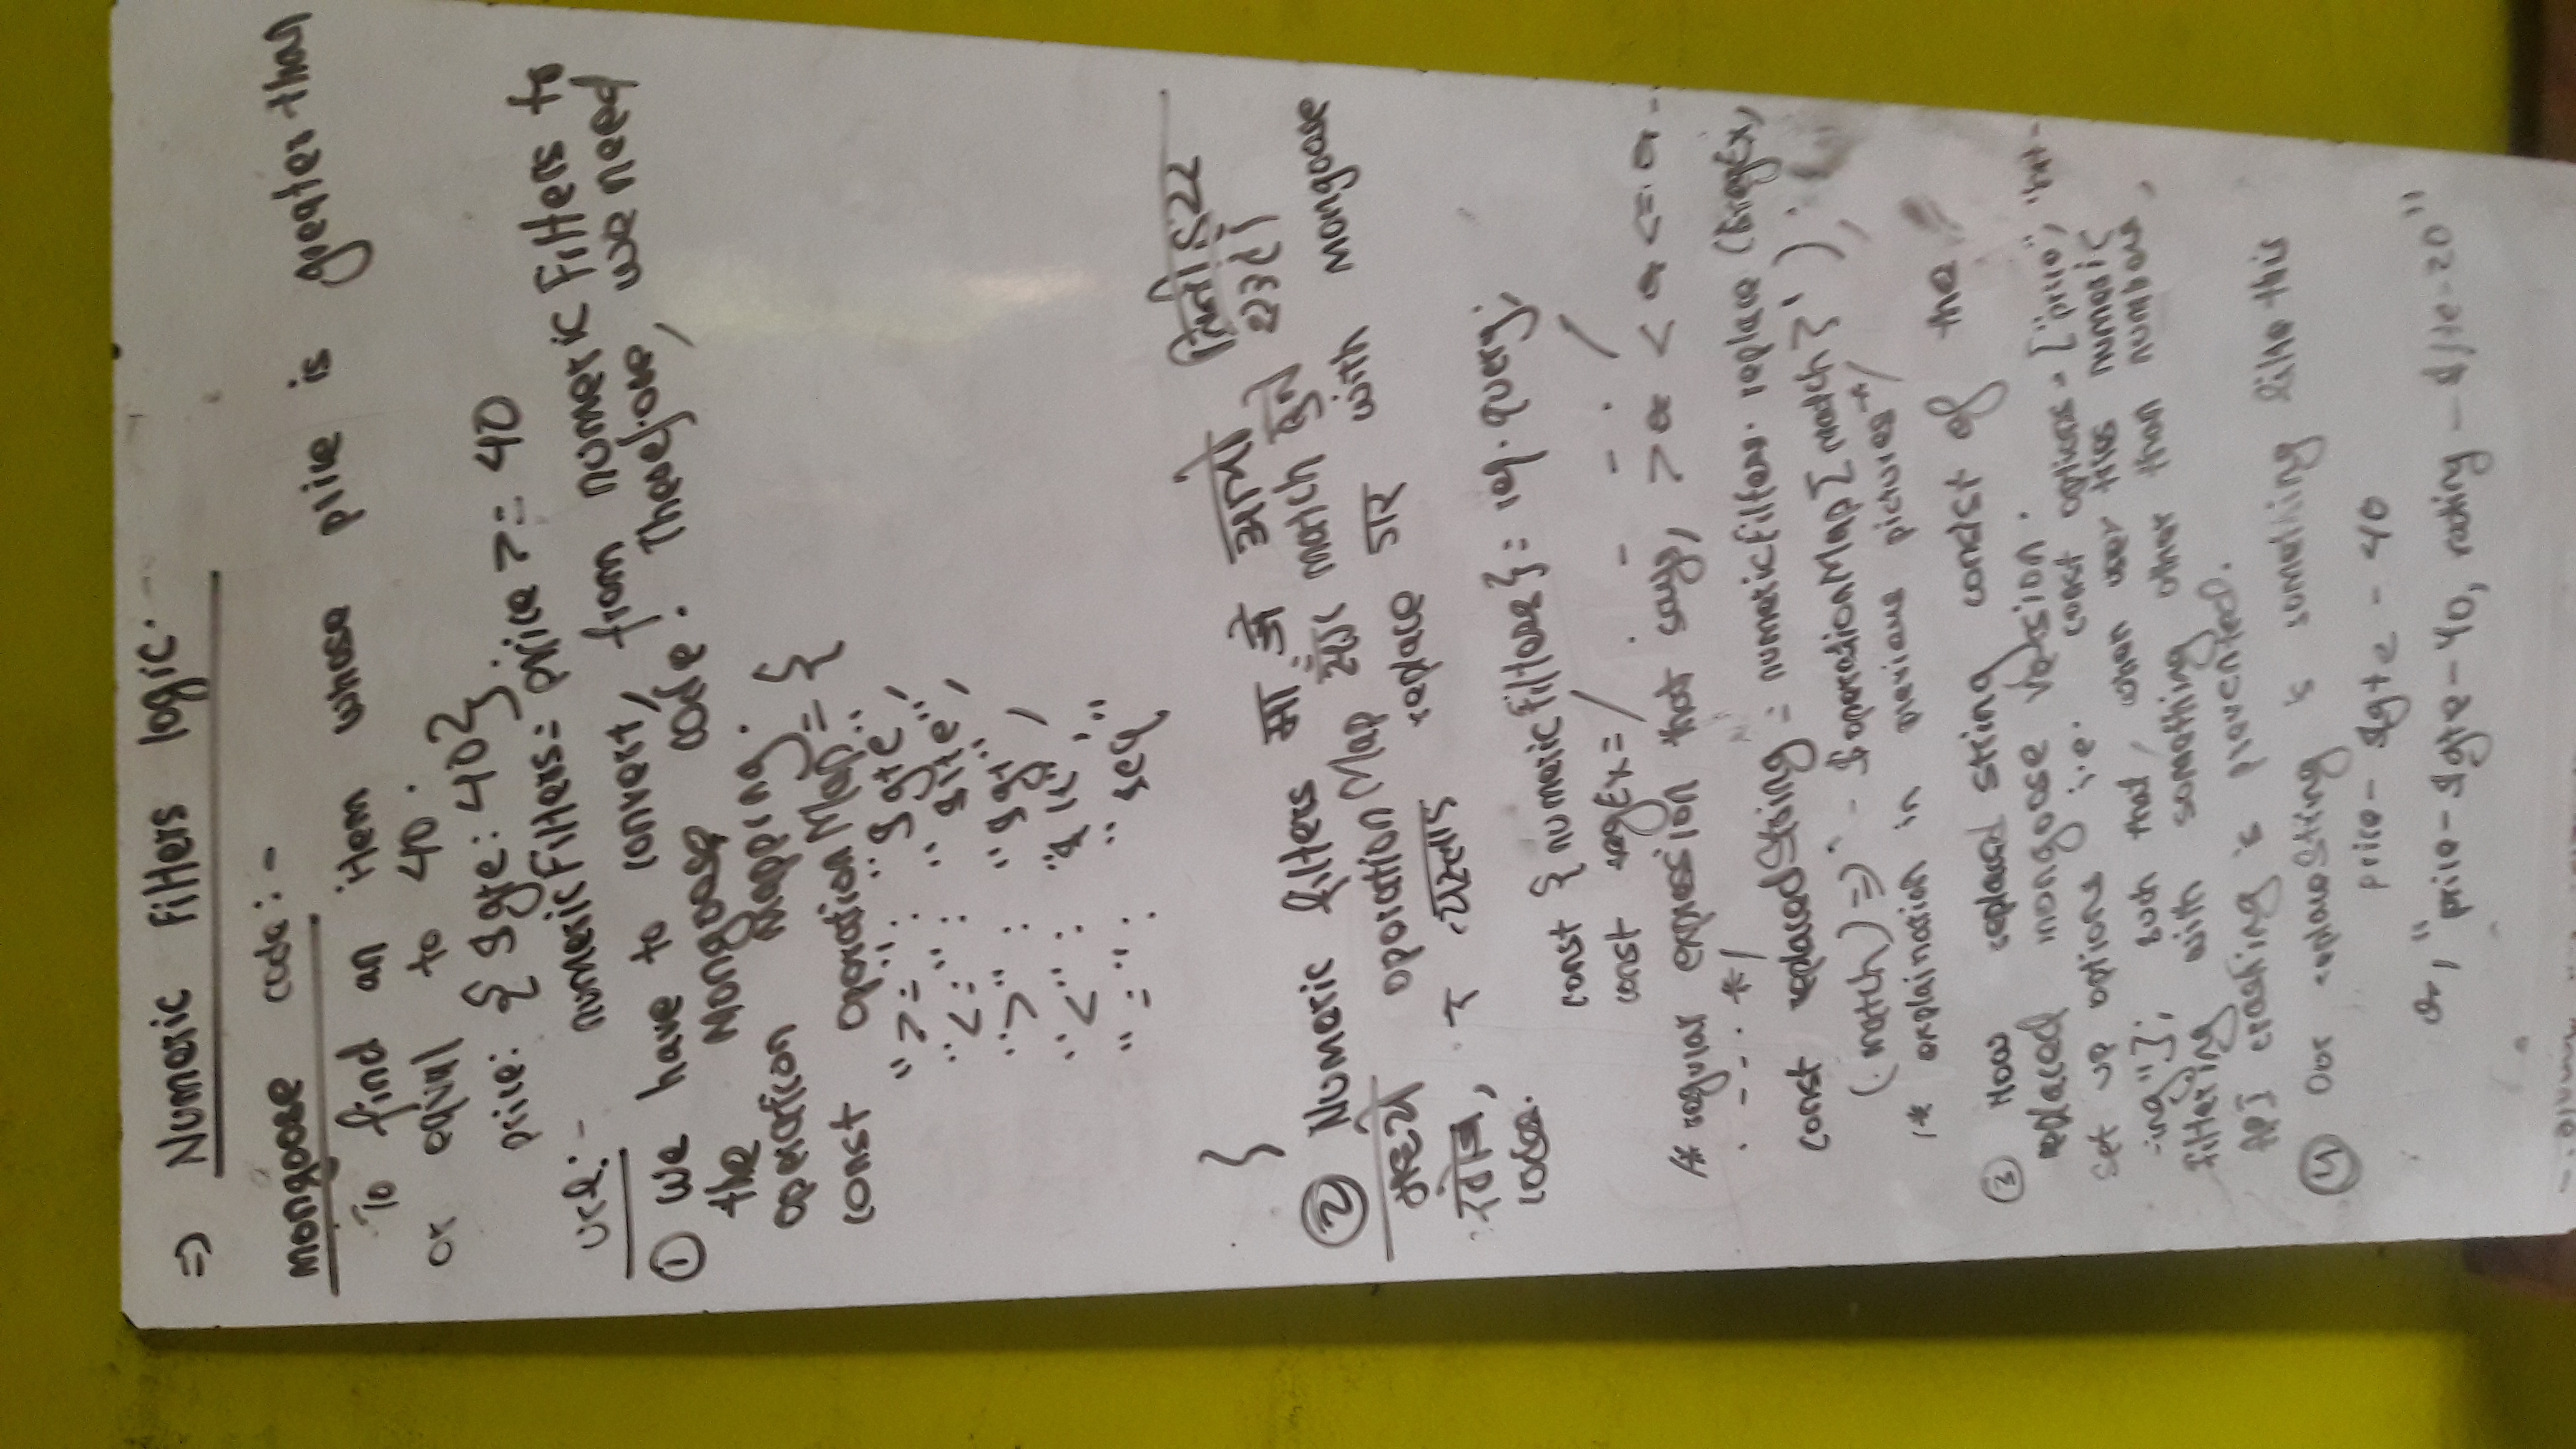 => Numeric Filters logic.
Mongoose code:-
To find an item whose price is greater than
or equal to 40.
price: { $gte: 40}
url:- numericFilters= price >= 40
① We have to convert, from numericFilters to
the Mongoose code. Therefore, we need
operation mapping.
const operationMap = {
">=": "$gte",
"<=": "$lte",
">": "$gt",
"<": "$lt",
"=": "$eq"
}
② Numeric filters मा जे आयो, तिनीहरु
मध्ये operationMap सँग match हुने
खोज, र त्यसलाई replace गर with mongoose
code.
const {numericFilters} = req.query;
const regEx = / . - - . /
/* regular expression that says, > or < or <= or -
. - - . */
const replacedString = numericFilters. replace (regEx,
(match) => ` - $operationMap [match}`);
/* explaination in previous pictures */
③ Now replaced string consist of the
replaced mongoose version.
set up options i.e. const options = ["price", "rat-
-ing"]; such that, when user tries numeric
filtering with something other than numbers,
API crashing is prevented.
④ Our replaceString is something like this
price- $gte - 40
or, "price-$gte-40, rating - $lte-20"